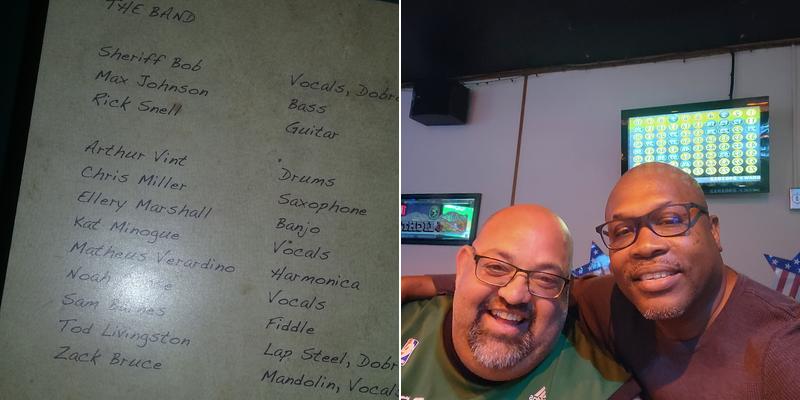 THE BAND
Sheriff Bob Vocals, Dobro
Max Johnson Bass
Rick Snell Guitar
Arthur Vint Drums
Chris Miller Saxophone
Ellery Marshall Banjo
Kat Minogue Vocals
Matheus Verardino Harmonica
Noah Vocals
Sam Fiddle
Tod Livingston Lap Steel, Dobr
Zack Bruce Mandolin, Vocals
adidas